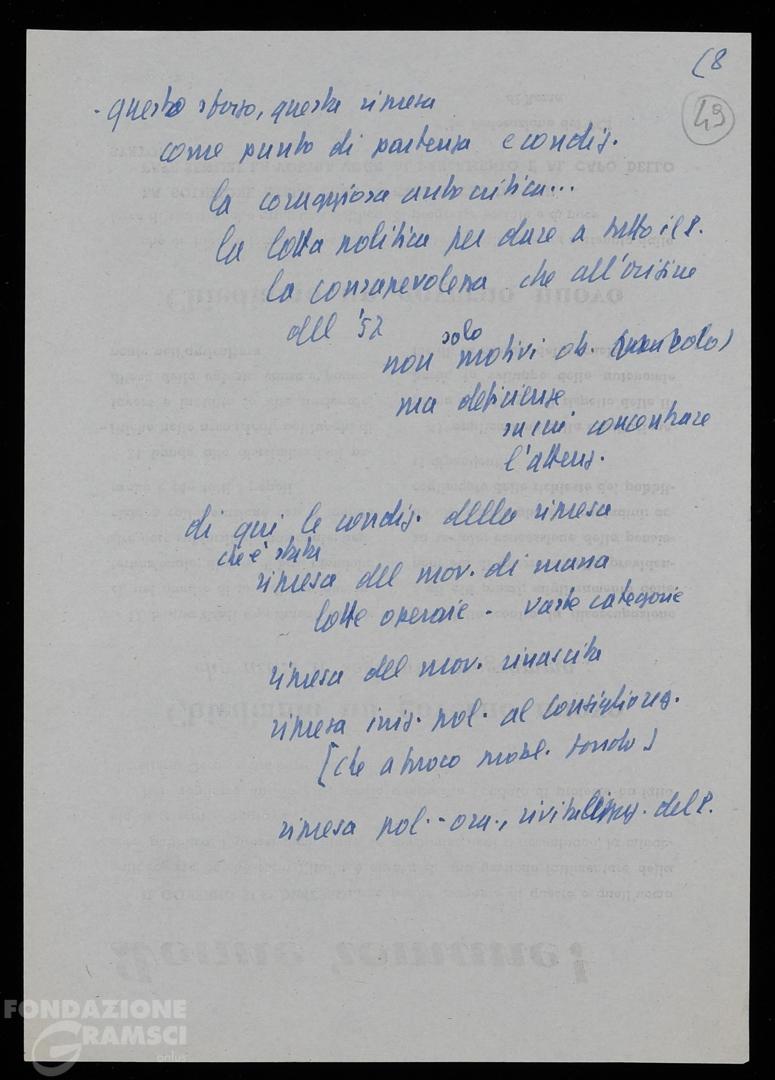 (8
49
- questo sforzo, questa ripresa
come punto di partenza e condiz.
la coraggiosa autocritica...
la lotta politica per dare a tutto il P.
la consapevolezza che all'origine
del '52
non solo motivi ob.
ma deficienze
su cui concentrare
l'attenz.
di qui le condiz. della ripresa
che è stata
ripresa del mov. di massa
lotte operaie - vaste categorie
ripresa del mov. rinascita
ripresa iniz. pol. al consiglio reg.
[che affrocò probl. fondo]
ripresa pol. - org., rivitalizzaz. del P.
FONDAZIONE
GRAMSCI
onlus